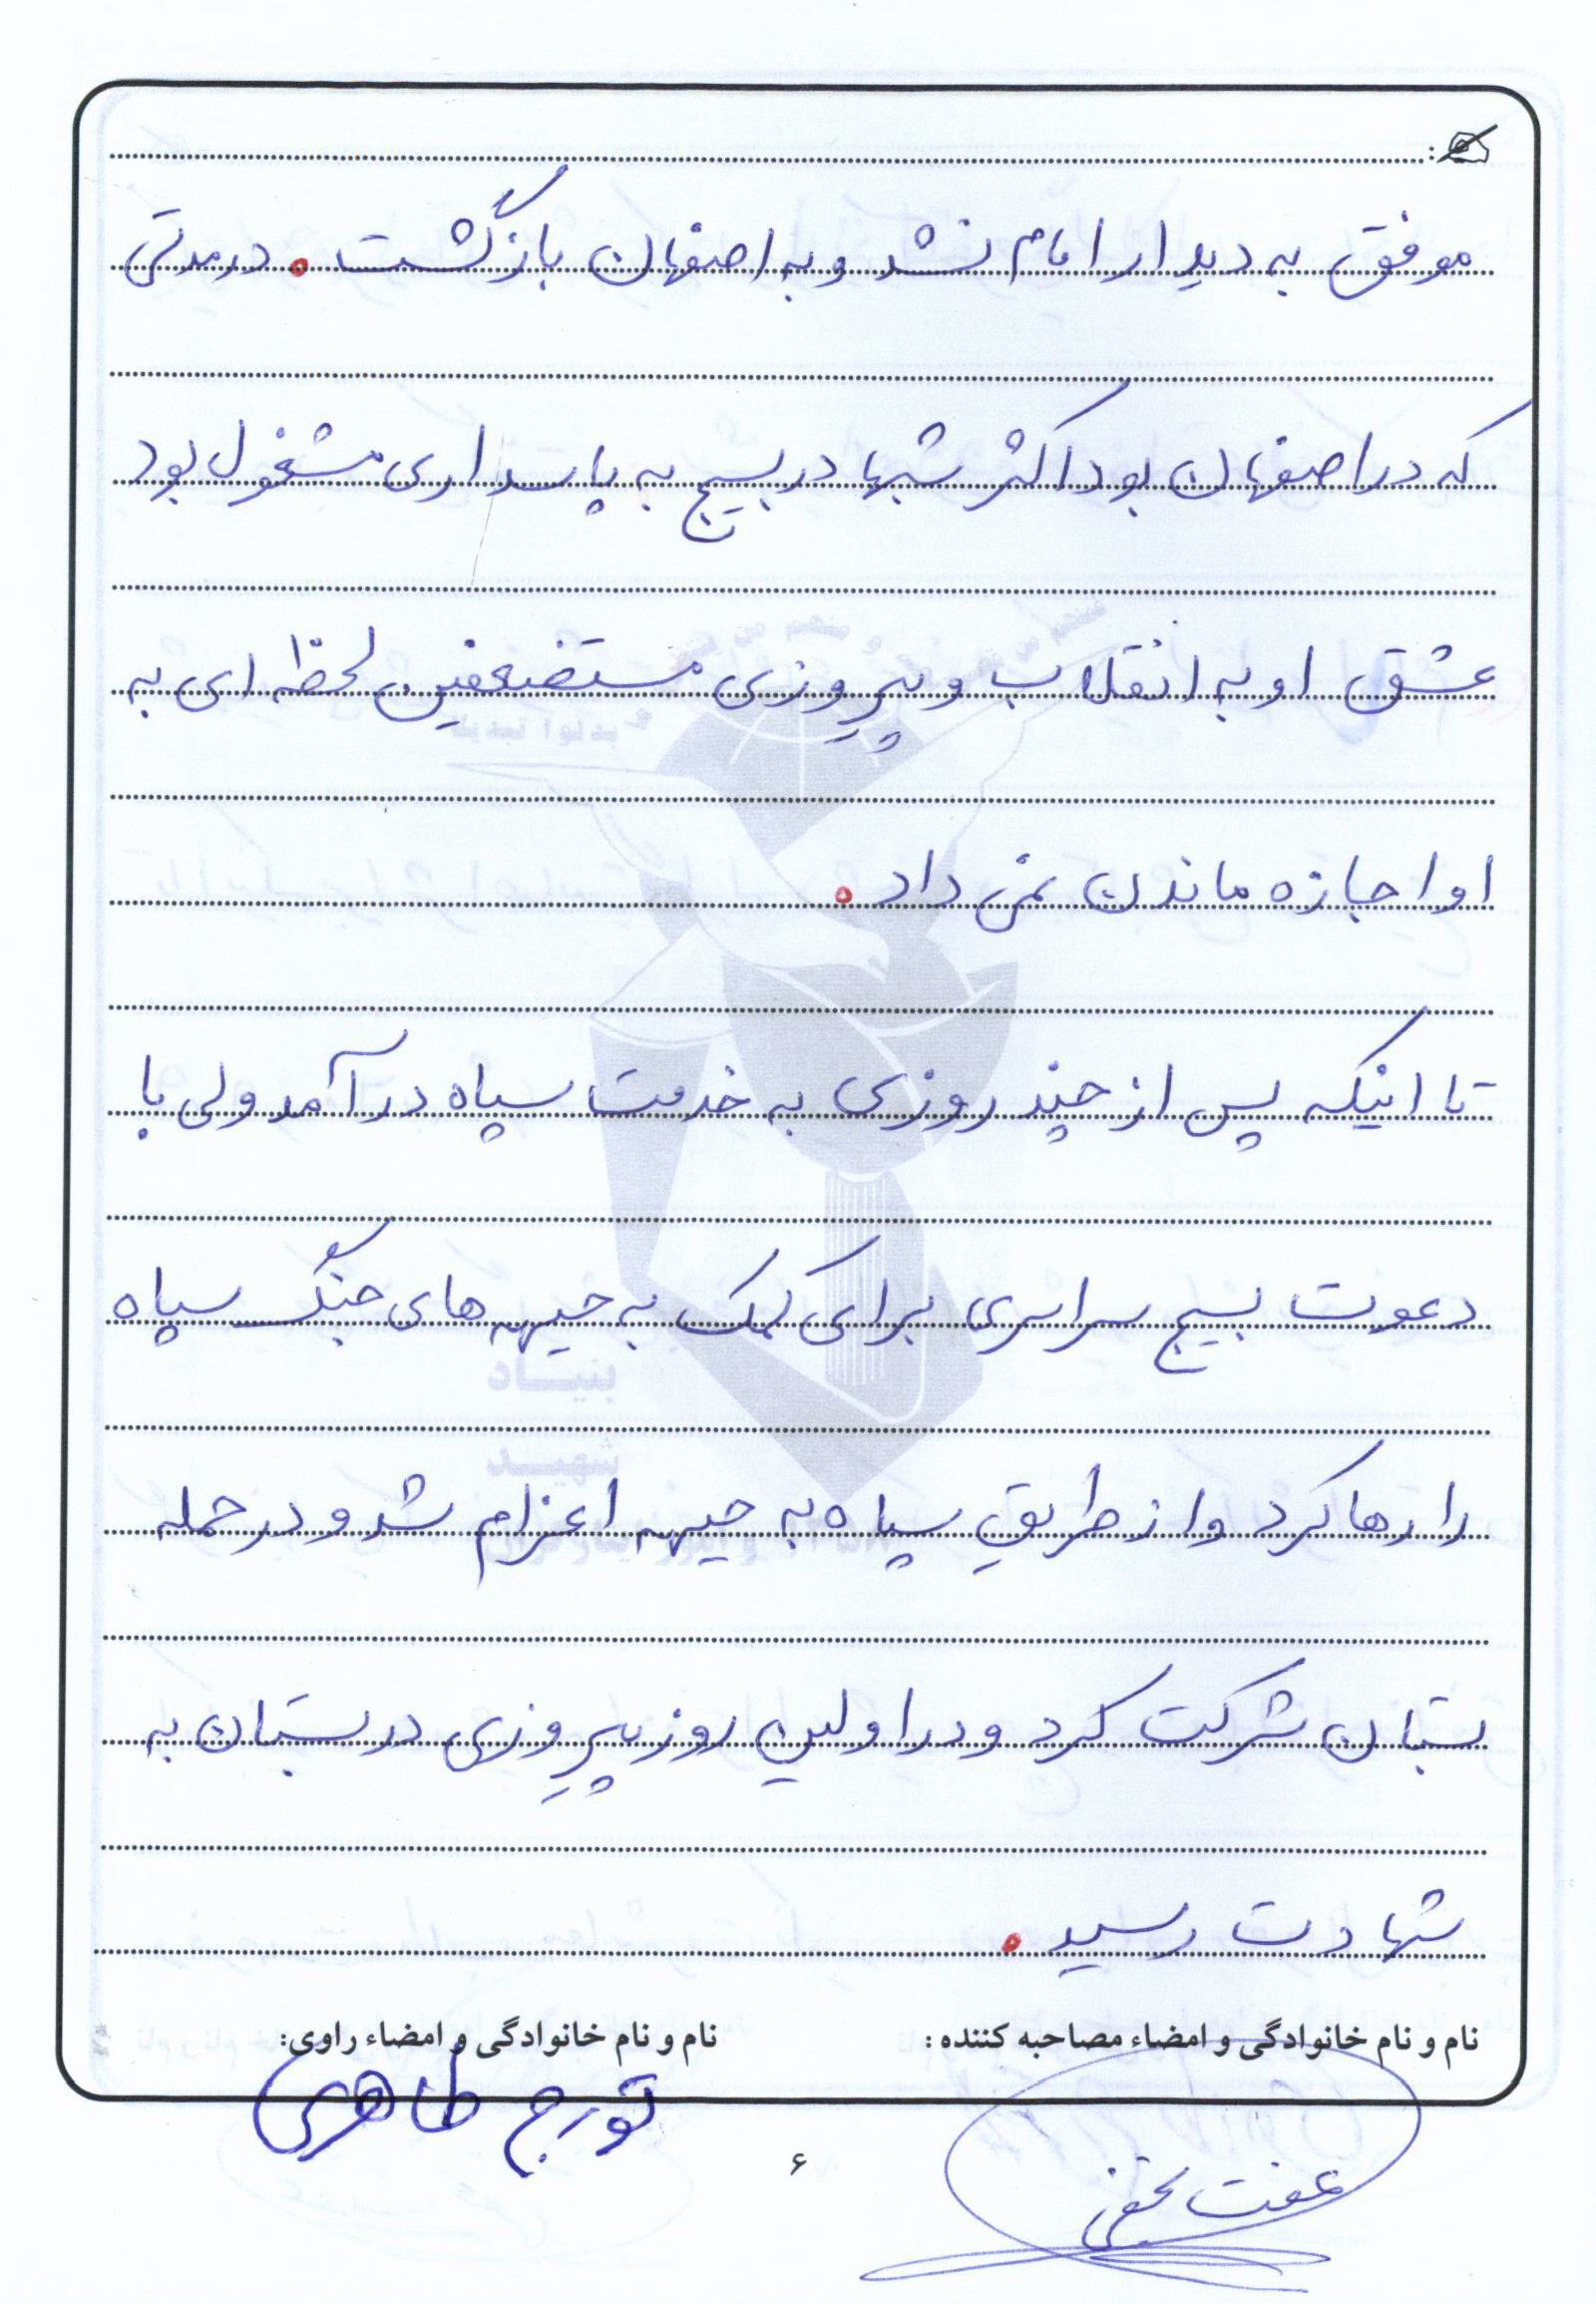 موفق به دیدار امام نشد و به اصفهان بازگشت . در مدتی
که در اصفهان بود اکثر شبها در بسیج به پاسداری مشغول بود
عشق او به انقلاب و پیروزی مستضعفین لحظه ای به
او اجازه ماندن نمی داد .
تا اینکه پس از چند روزی به خدمت سپاه در آمد ولی با
دعوت بسیج سراسری برای کمک به جبهه های جنگ سپاه
را رها کرد و از طریق سپاه به جبهه اعزام شد و در حمله
بستان شرکت کرد و در اولین روز پیروزی در بستان به
شهادت رسید .
نام و نام خانوادگی و امضاء مصاحبه کننده : نام و نام خانوادگی و امضاء راوی:
تورج طاهری
عفت
۶